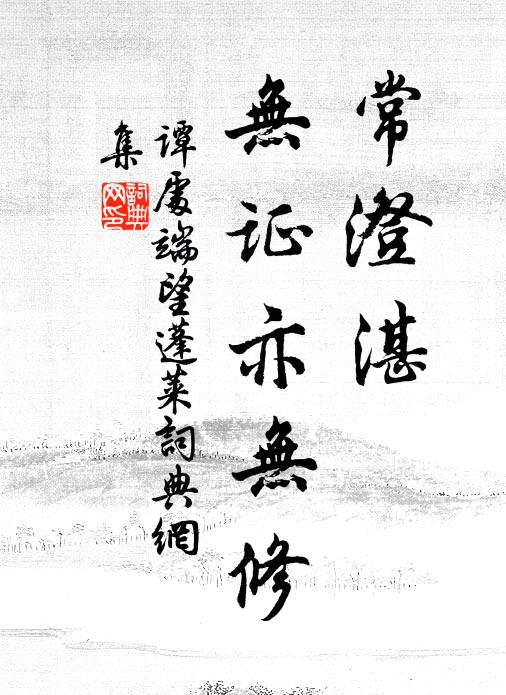 常澄湛
無证亦無修
谭處端望蓬莱詞典網
集
詞典
网印